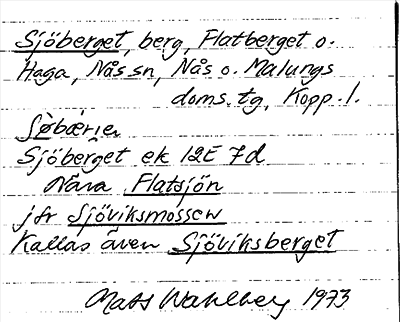 Sjöberget, berg, Flatberget o.
Haga, Nås sn, Nås o. Malungs
doms. tg, Kopp. l.
Sjöberget ek 12E 7d
Nära Flatsjön
jfr Sjöviksmossen
Kallas även Sjöviksberget
Mats Wahlberg 1973